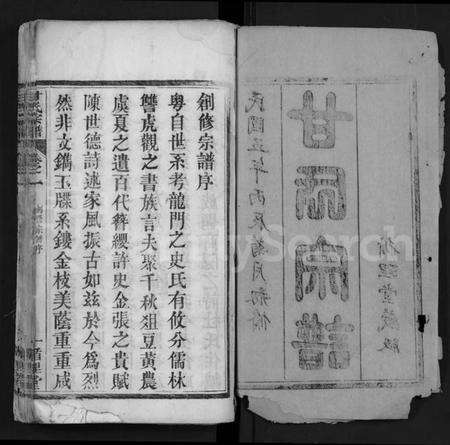 民國五年丙辰菊月初修
甘氏宗譜
堂藏版
創修宗譜序
粵自世系考龍門之史氏有攸分儒林
讐虎觀之書族言夫聚千秋俎豆黃農
虞夏之遺百代簪纓許史金張之貴賦
陳世德詩述家風振古如兹於今為烈
然非文鐫玉牒系鏤金枝美蔭重重咸